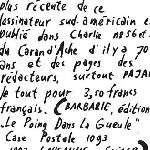 plus récente de ce
dessinateur sud-américain e
publié dans Charlie no 56 et
du Caran d'Ache d'il y a 70
ans et des pages des
rédacteurs, surtout PAJAK
le tout pour 3,50 francs
français. BARBARIE, édition
"Le Poing Dans La Gueule"
Case Postale 1093